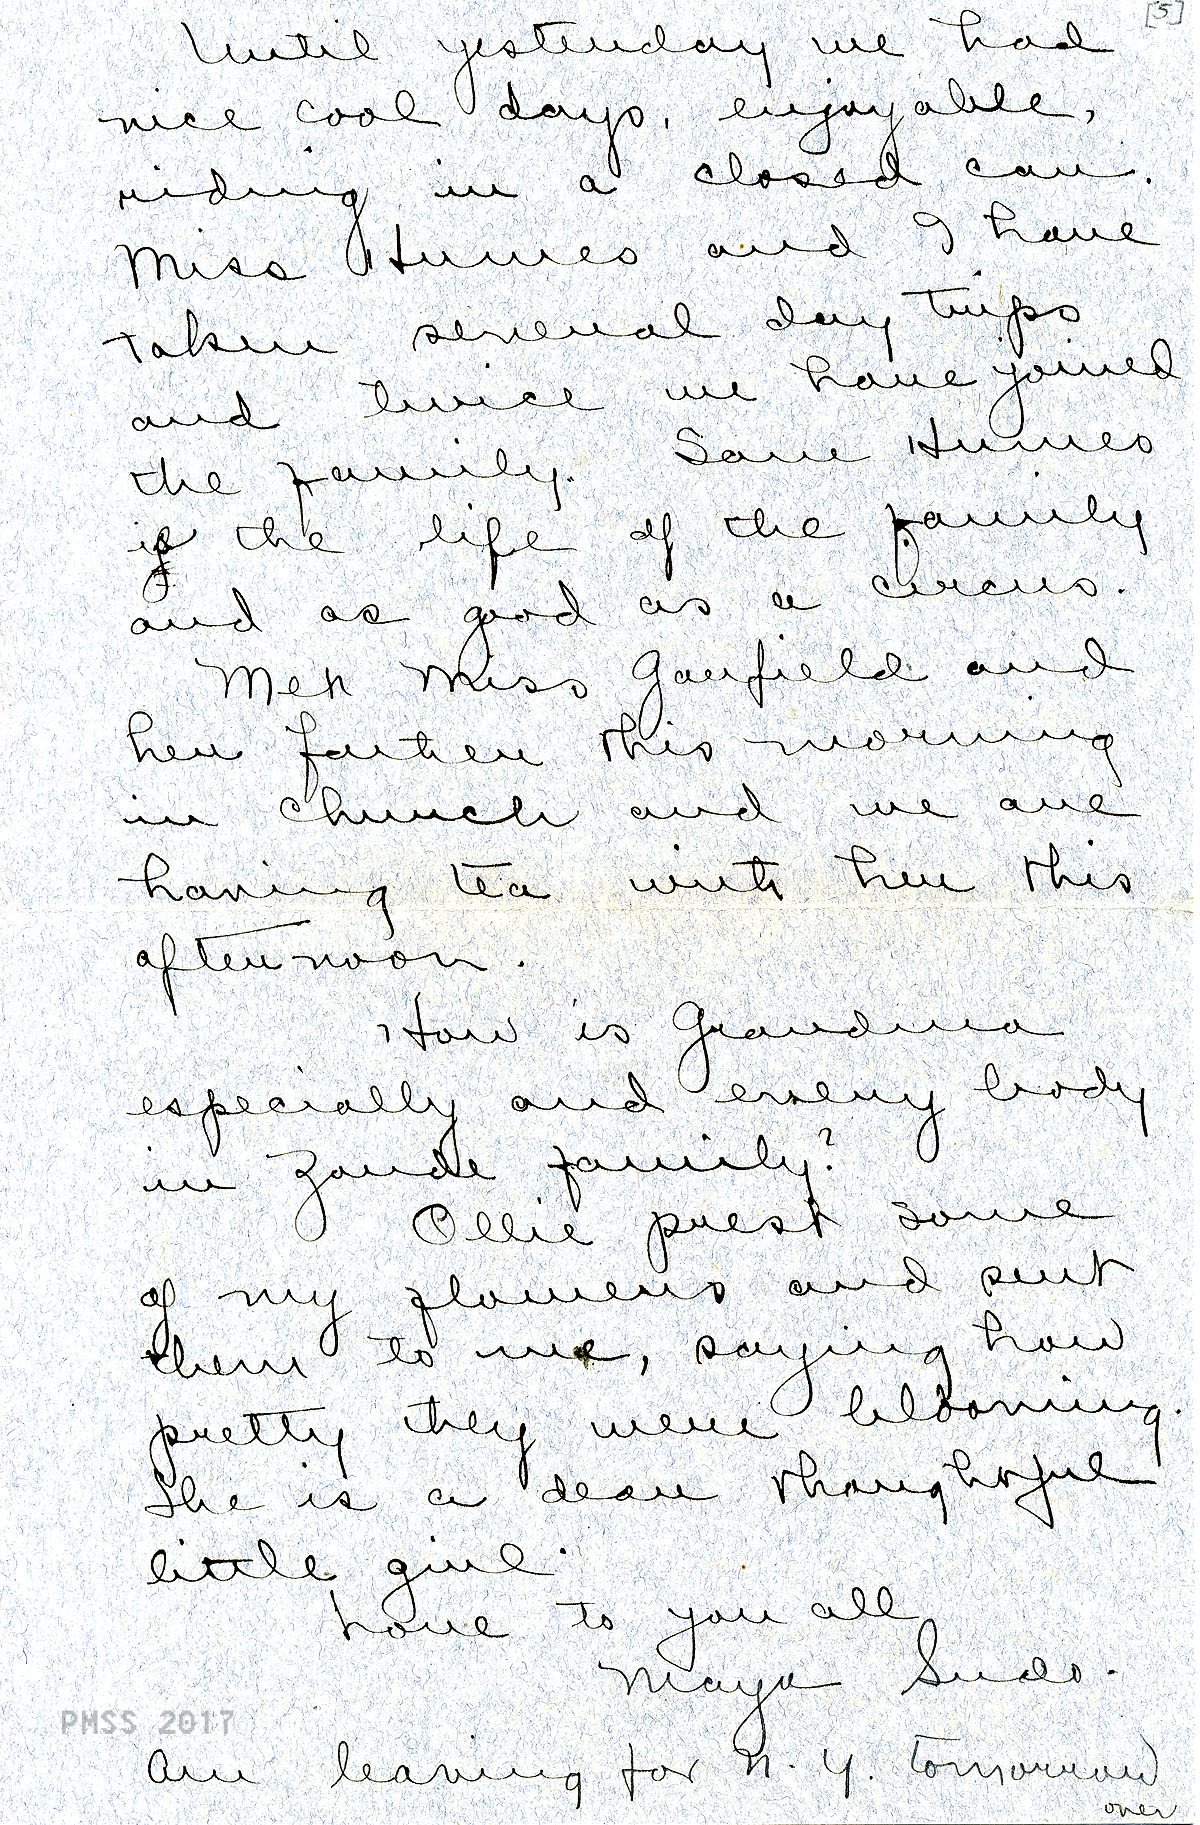 [5]
Until yesterday we had
nice cool days, enjoyable,
riding in a closed car.
Miss Humes and I have
taken several day trips
and twice we have joined
the family. Sam Humes
is the life of the family
and as good as a circus.
Met Miss Garfield and
her father this morning
in church and we are
having tea with her this
afternoon.
How is Grandma
especially and every body
in Zande family?
Ollie prest some
of my flowers and sent
them to me, saying how
pretty they were blooming.
She is a dear thoughtful
little girl.
Love to you all
Maya Sudo.
PMSS 2017
Am leaving for N. Y. tomorrow
over